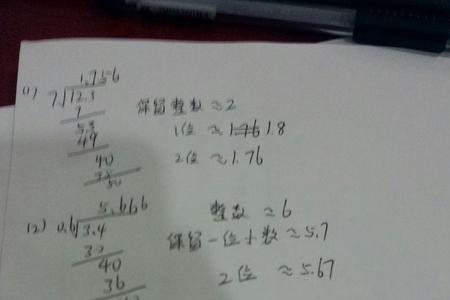 (1) 1.756
7√12.3
7
53
49
40
35
50
保留整数≈2
1位≈1.8
2位≈1.76
(2) 5.666
0.6√3.4
30
40
36
整数≈6
保留一位小数≈5.7
2位≈5.67